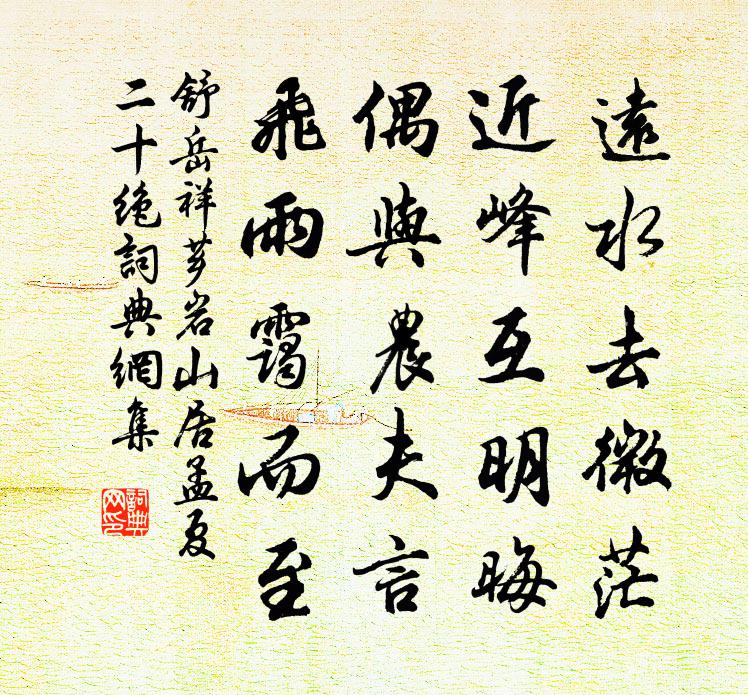 遠水去微茫
近峰互明晦
偶與農夫言
飛雨靄而至
舒岳祥芗岩山居孟夏
二十绝詞典網集
詞典
网印